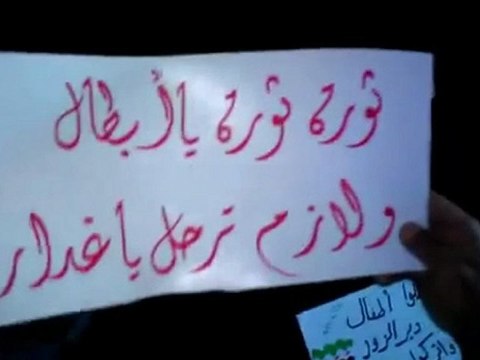 ثورة ثورة يا أبطال
ولازم ترحل يا غدار
أطفال
دير الزور